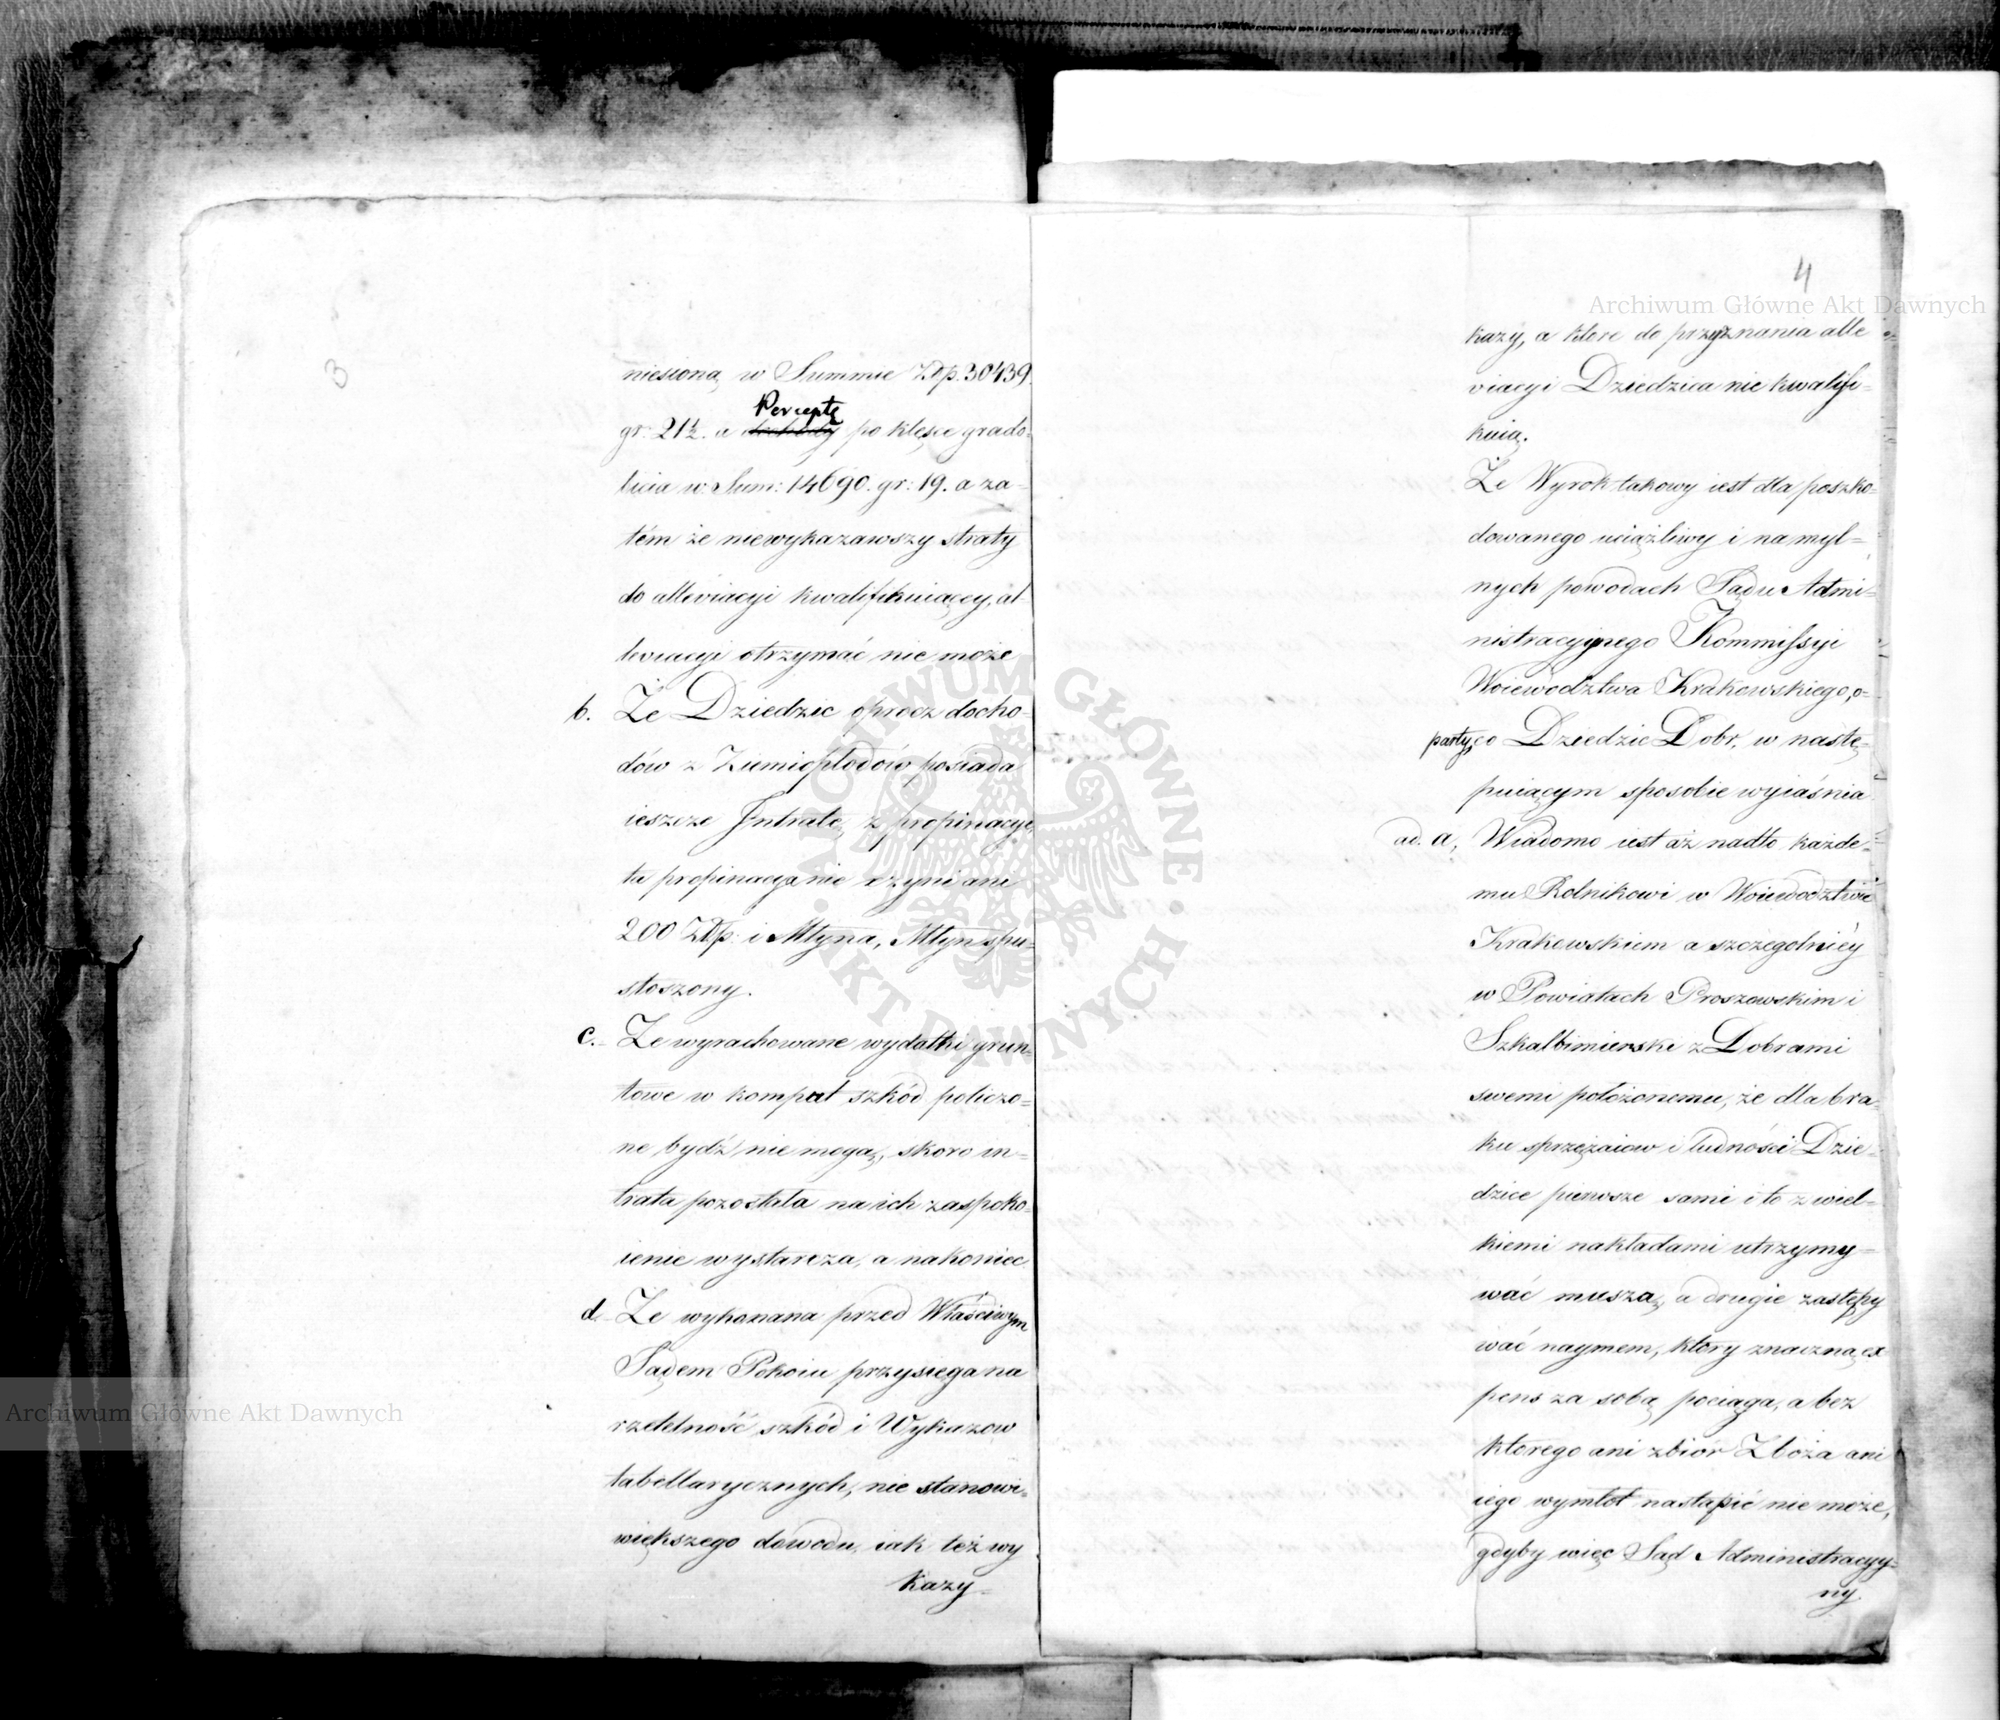 3
niesioną w Summie Złp. 30439.
gr: 21½. a Perceptę po klęsce grado-
bicia w Sum: 14690. gr: 19. a za-
tém że niewykazawszy straty
do alleviacyi kwalifikuiącey, al-
leviacyi otrzymać nie może
b. Że Dziedzic oprocz docho-
dów z Ziemiopłodów posiada
ieszcze Jntratę z propinacyi,
ta propinacya nie czyni ani
200 Złp: i Młyna, Młyn spu-
stoszony.
c. Że wyrachowane wydatki grun-
towe w komput szkód policzo-
ne bydź nie mogą, skoro in-
trata pozostała na ich zaspoko-
ienie wystarcza, a nakoniec
d. Że wykonana przed Właściwym
Sądem Pokoiu przysięga na
rzetelność szkód i Wykazow
tabellarycznych, nie stanowi
większego dowodu, iak też wy
kazy
4
kazy, a ktore do przyznania alle
viacyi Dziedzica nie kwalifi-
kuią.
Że Wyrok takowy iest dla poszko-
dowanego uciążliwy i na myl-
nych powodach Sądu Admi-
nistracyinego Kommissyi
Woiewodztwa Krakowskiego, o-
party, co Dziedzic Dobr, w nastę-
puiącym sposobie wyiaśnia
ad. a, Wiadomo iest aż nadto każde-
mu Rolnikowi w Woiewodztwie
Krakowskiem a szczegolniéy
w Powiatach Proszowskim i
Szkalbimierski z Dobrami
swemi położonemu, że dla bra-
ku sprzężaiow i ludności Dzie-
dzice pierwsze sami i to z wiel-
kiemi nakładami utrzymy-
wać muszą, a drugie zastępy
wać naymem, ktory znaczną ex
pens za sobą pociąga, a bez
ktorego ani zbior Zboża ani
iego wymłot nastąpić nie może,
gdyby więc Sąd Administracyy-
ny
Archiwum Główne Akt Dawnych
Archiwum Główne Akt Dawnych
ARCHIWUM GŁÓWNE AKT DAWNYCH